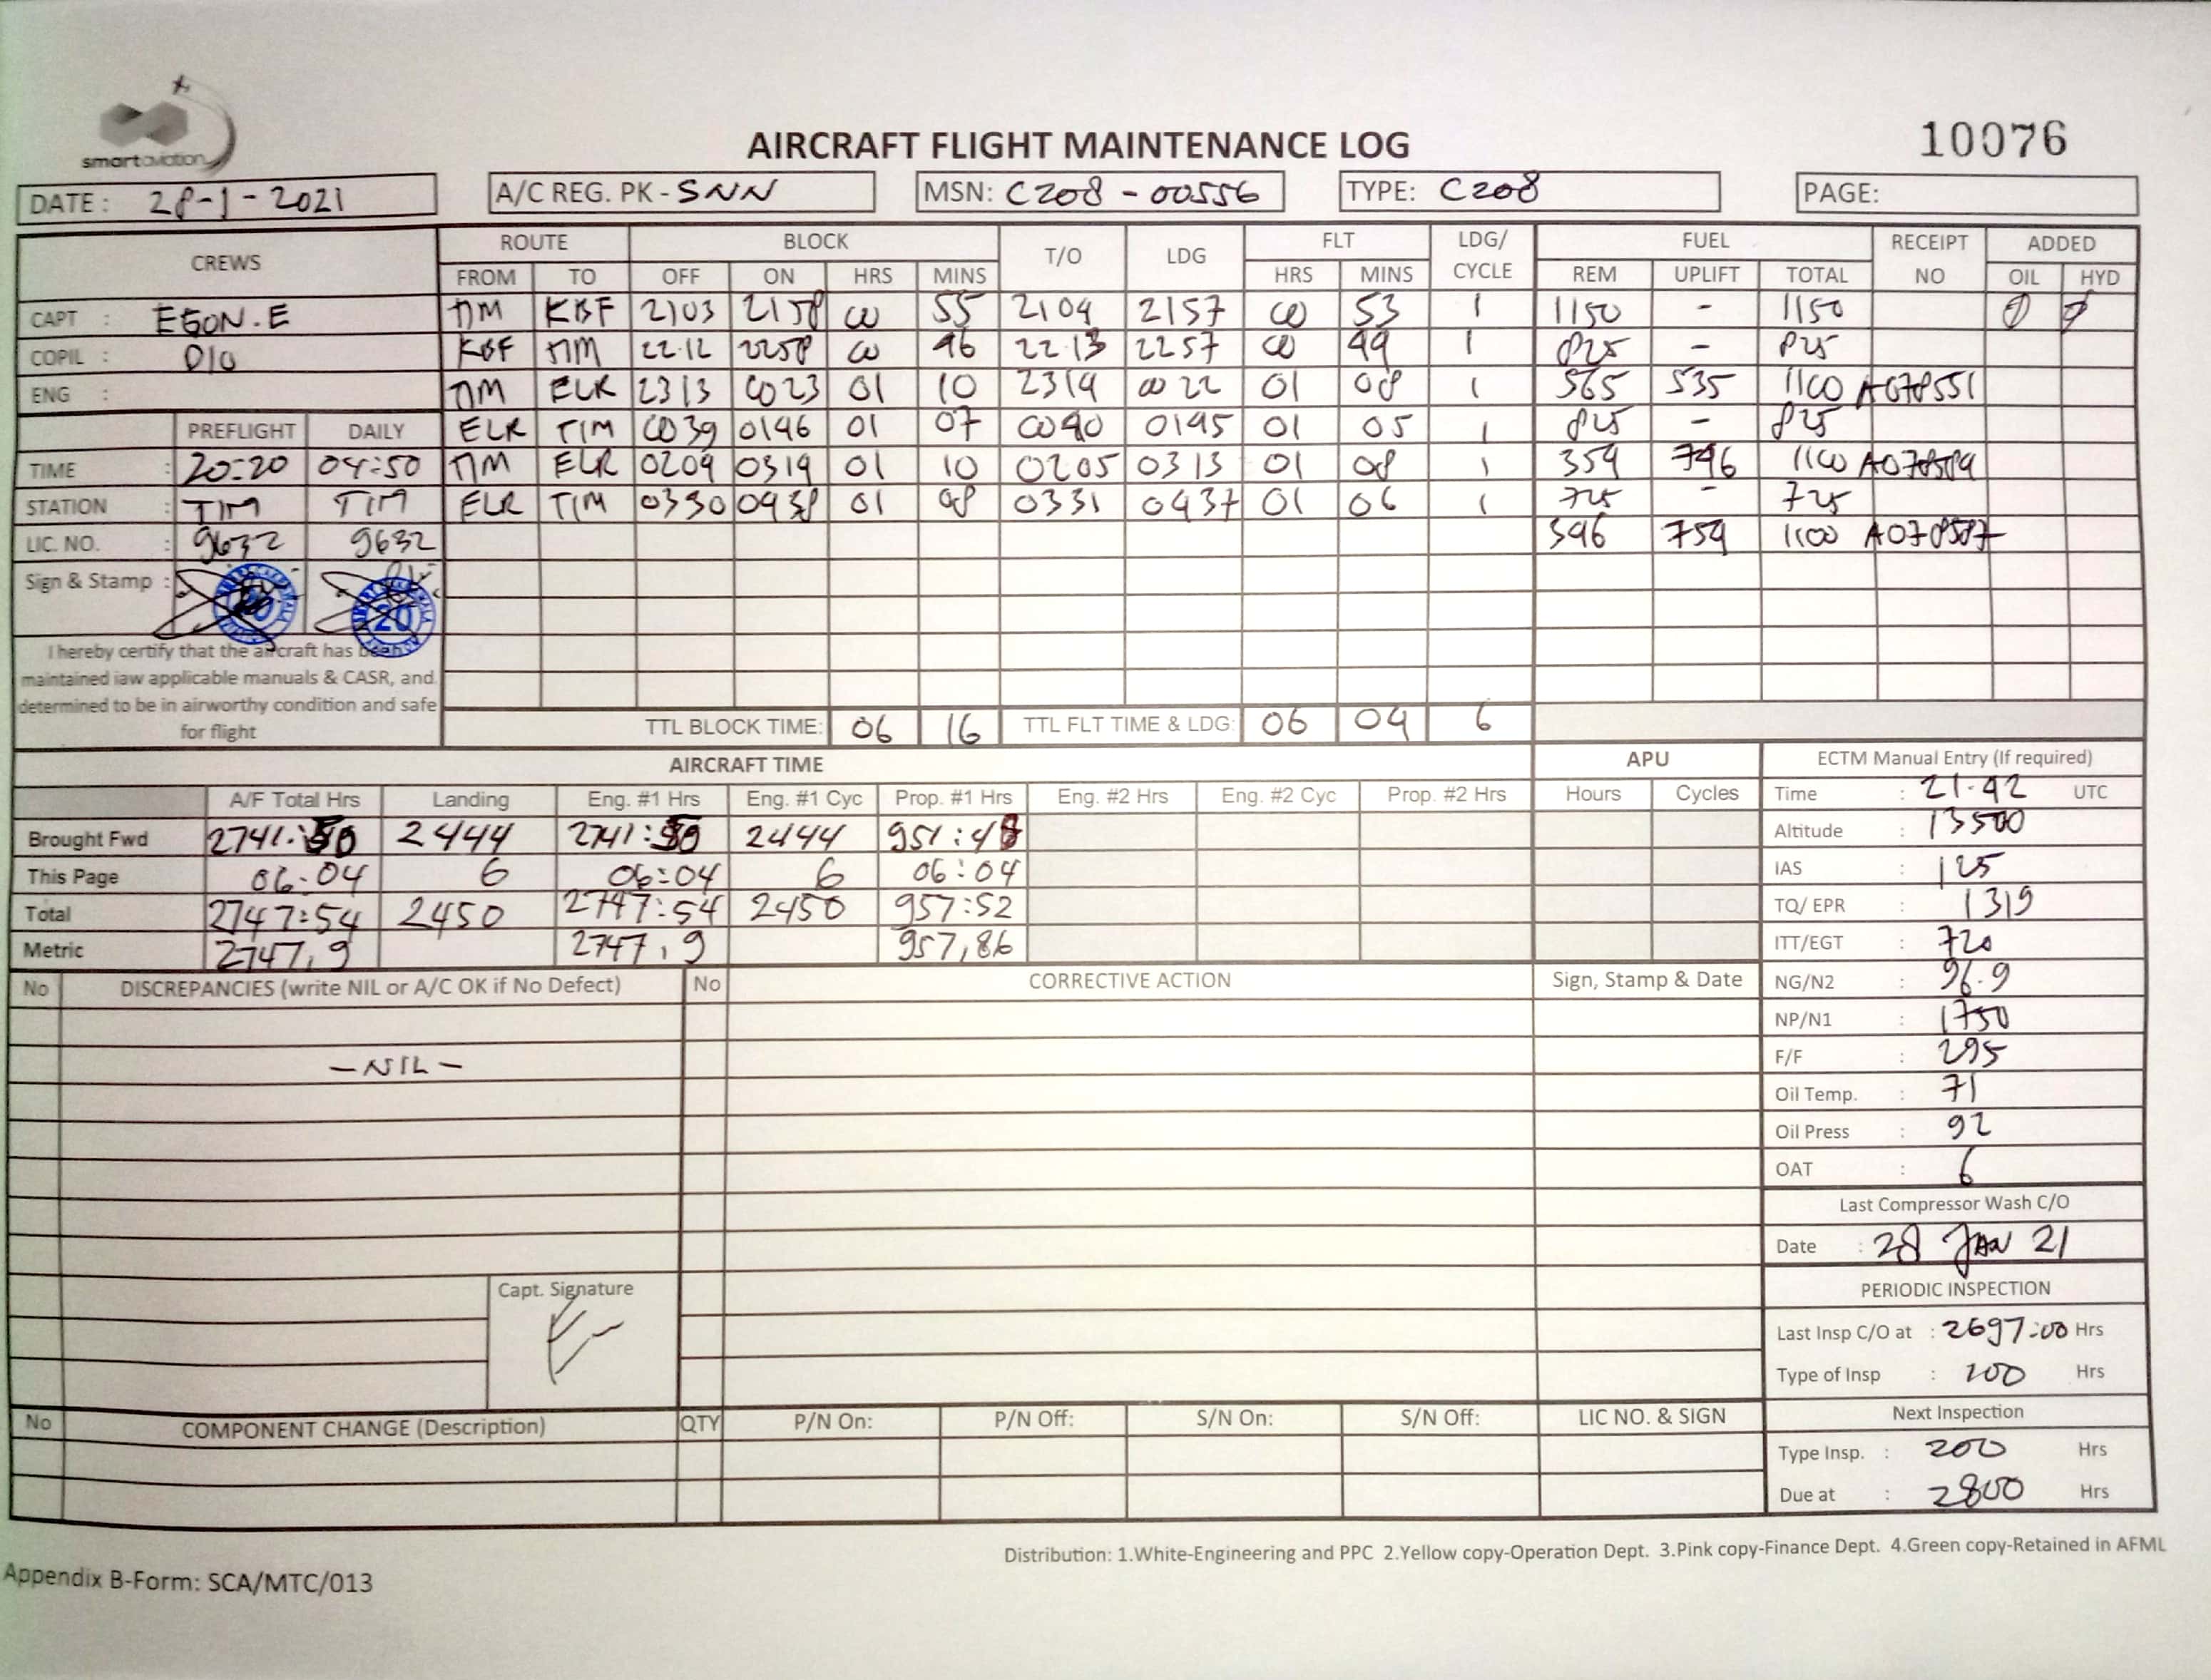 smart aviation
AIRCRAFT FLIGHT MAINTENANCE LOG
10076
DATE : 28-1-2021
A/C REG. PK - SNN
MSN: C208 - 00556
TYPE: C208
PAGE:
CREWS ROUTE BLOCK T/O LDG FLT LDG/ CYCLE FUEL RECEIPT NO ADDED
FROM TO OFF ON HRS MINS HRS MINS REM UPLIFT TOTAL OIL HYD
CAPT : EGON.E TIM KBF 2103 2158 00 55 2104 2157 00 53 1 1150 - 1150 0 0
COPIL : 010 KBF TIM 22.12 2258 00 46 22 13 2257 00 44 1 825 - 825
ENG : TIM ELR 2313 0023 01 10 2314 0022 01 08 1 565 535 1100 A078551
PREFLIGHT DAILY ELR TIM 0039 0146 01 07 0040 0145 01 05 1 825 - 825
TIME : 20:20 04:50 TIM ELR 0204 0314 01 10 0205 0313 01 08 1 354 746 1100
STATION : TIM TIM ELR TIM 0330 0438 01 08 0331 0437 01 06 1 725 - 725
LIC. NO. : 9632 9632 754 1100 A078587
Sign & Stamp : 20 20
I hereby certify that the aircraft has been
maintained iaw applicable manuals & CASR, and
determined to be in airworthy condition and safe
for flight
TTL BLOCK TIME: 06 16 TTL FLT TIME & LDG: 06 04 6
AIRCRAFT TIME APU
A/F Total Hrs Landing Eng. #1 Hrs Eng. #1 Cyc Prop. #1 Hrs Eng. #2 Hrs Eng. #2 Cyc Prop. #2 Hrs Hours Cycles
Brought Fwd 2741:50 2444 2741:50 2444 951:48
This Page 06:04 6 06:04 6 06:04
Total 2747:54 2450 2747:54 2450 957:52
Metric 2747,9 2747,9 957,86
ECTM Manual Entry (If required)
Time : 21.42 UTC
Altitude : 13500
IAS : 125
TQ/ EPR : 1319
ITT/EGT : 720
NG/N2 : 96.9
NP/N1 : 1750
F/F : 295
Oil Temp. : 71
Oil Press : 92
OAT : 6
Last Compressor Wash C/O
Date : 28 JAN 21
PERIODIC INSPECTION
Last Insp C/O at : 2697:00 Hrs
Type of Insp : 100 Hrs
Next Inspection
Type Insp. : 200 Hrs
Due at : 2800 Hrs
No DISCREPANCIES (write NIL or A/C OK if No Defect) No CORRECTIVE ACTION Sign, Stamp & Date
- NIL -
Capt. Signature
No COMPONENT CHANGE (Description) QTY P/N On: P/N Off: S/N On: S/N Off: LIC NO. & SIGN
Distribution: 1.White-Engineering and PPC 2.Yellow copy-Operation Dept. 3.Pink copy-Finance Dept. 4.Green copy-Retained in AFML
Appendix B-Form: SCA/MTC/013